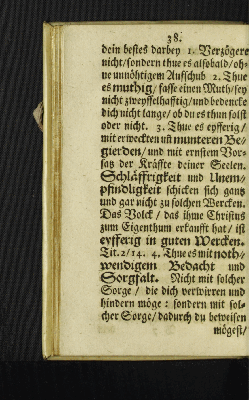 38.
dein bestes darbey 1. Verzögere
nicht/sondern thue es alsobald/oh-
ne unnöhtigem Aufschub 2. Thue
es muthig/ fasse einen Muth/sey
nicht zweyffelhafftig/und bedencke
dich nicht lange/ ob du es thun solst
oder nicht. 3. Thue es eyfferig/
mit erweckten uñ munteren Be-
gierden/ und mit ernstem Vor-
satz der Kräffte deiner Seelen.
Schläffrigkeit und Unem-
pfindligkeit schicken sich gantz
und gar nicht zu solchen Wercken.
Das Volck/ das ihme Christus
zum Eigenthum erkaufft hat/ ist
eyfferig in guten Wercken.
Tit. 2/14. 4. Thue es mit noth-
wendigem Bedacht und
Sorgfalt. Nicht mit solcher
Sorge/ die dich verwirren und
hindern möge: sondern mit sol-
cher Sorge/ dadurch du beweisen
mögest/